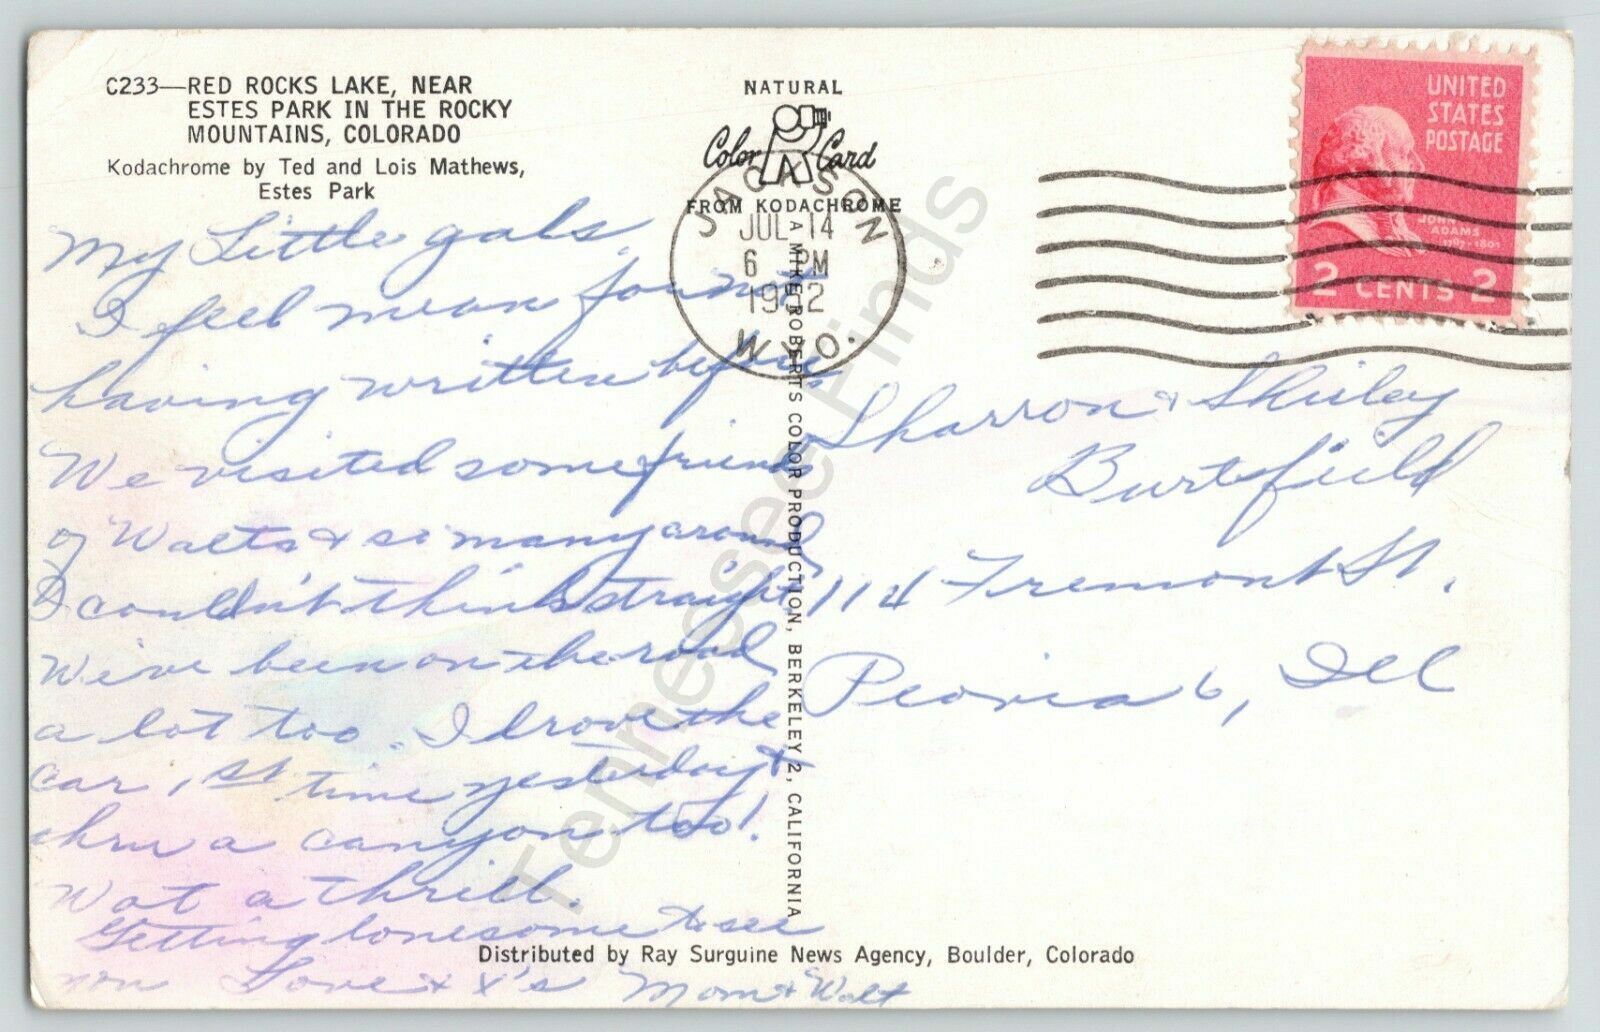 C233—RED ROCKS LAKE, NEAR
ESTES PARK IN THE ROCKY
MOUNTAINS, COLORADO
Kodachrome by Ted and Lois Mathews,
Estes Park
NATURAL
Color Card
FROM KODACHROME
A MIKE ROBERTS COLOR PRODUCTION, BERKELEY 2, CALIFORNIA
JACKSON
JUL 14
6 PM
1952
WYO.
UNITED
STATES
POSTAGE
JOHN
ADAMS
1797-1801
2 CENTS 2
My Little gals,
I feel mean for not
having written before
We visited some friends
of Walts & so many around
I couldn't think straight
We've been on the road
a lot too. I drove the
car, 1st time yesterday &
thru a canyon too!
Wot a thrill.
Getting lonesome to see
you Love & X's Mom & Walt
Sharron & Shirley
Burtsfield
114 Fremont St.
Peoria 6, Ill
Distributed by Ray Surguine News Agency, Boulder, Colorado
Tennessee Finds